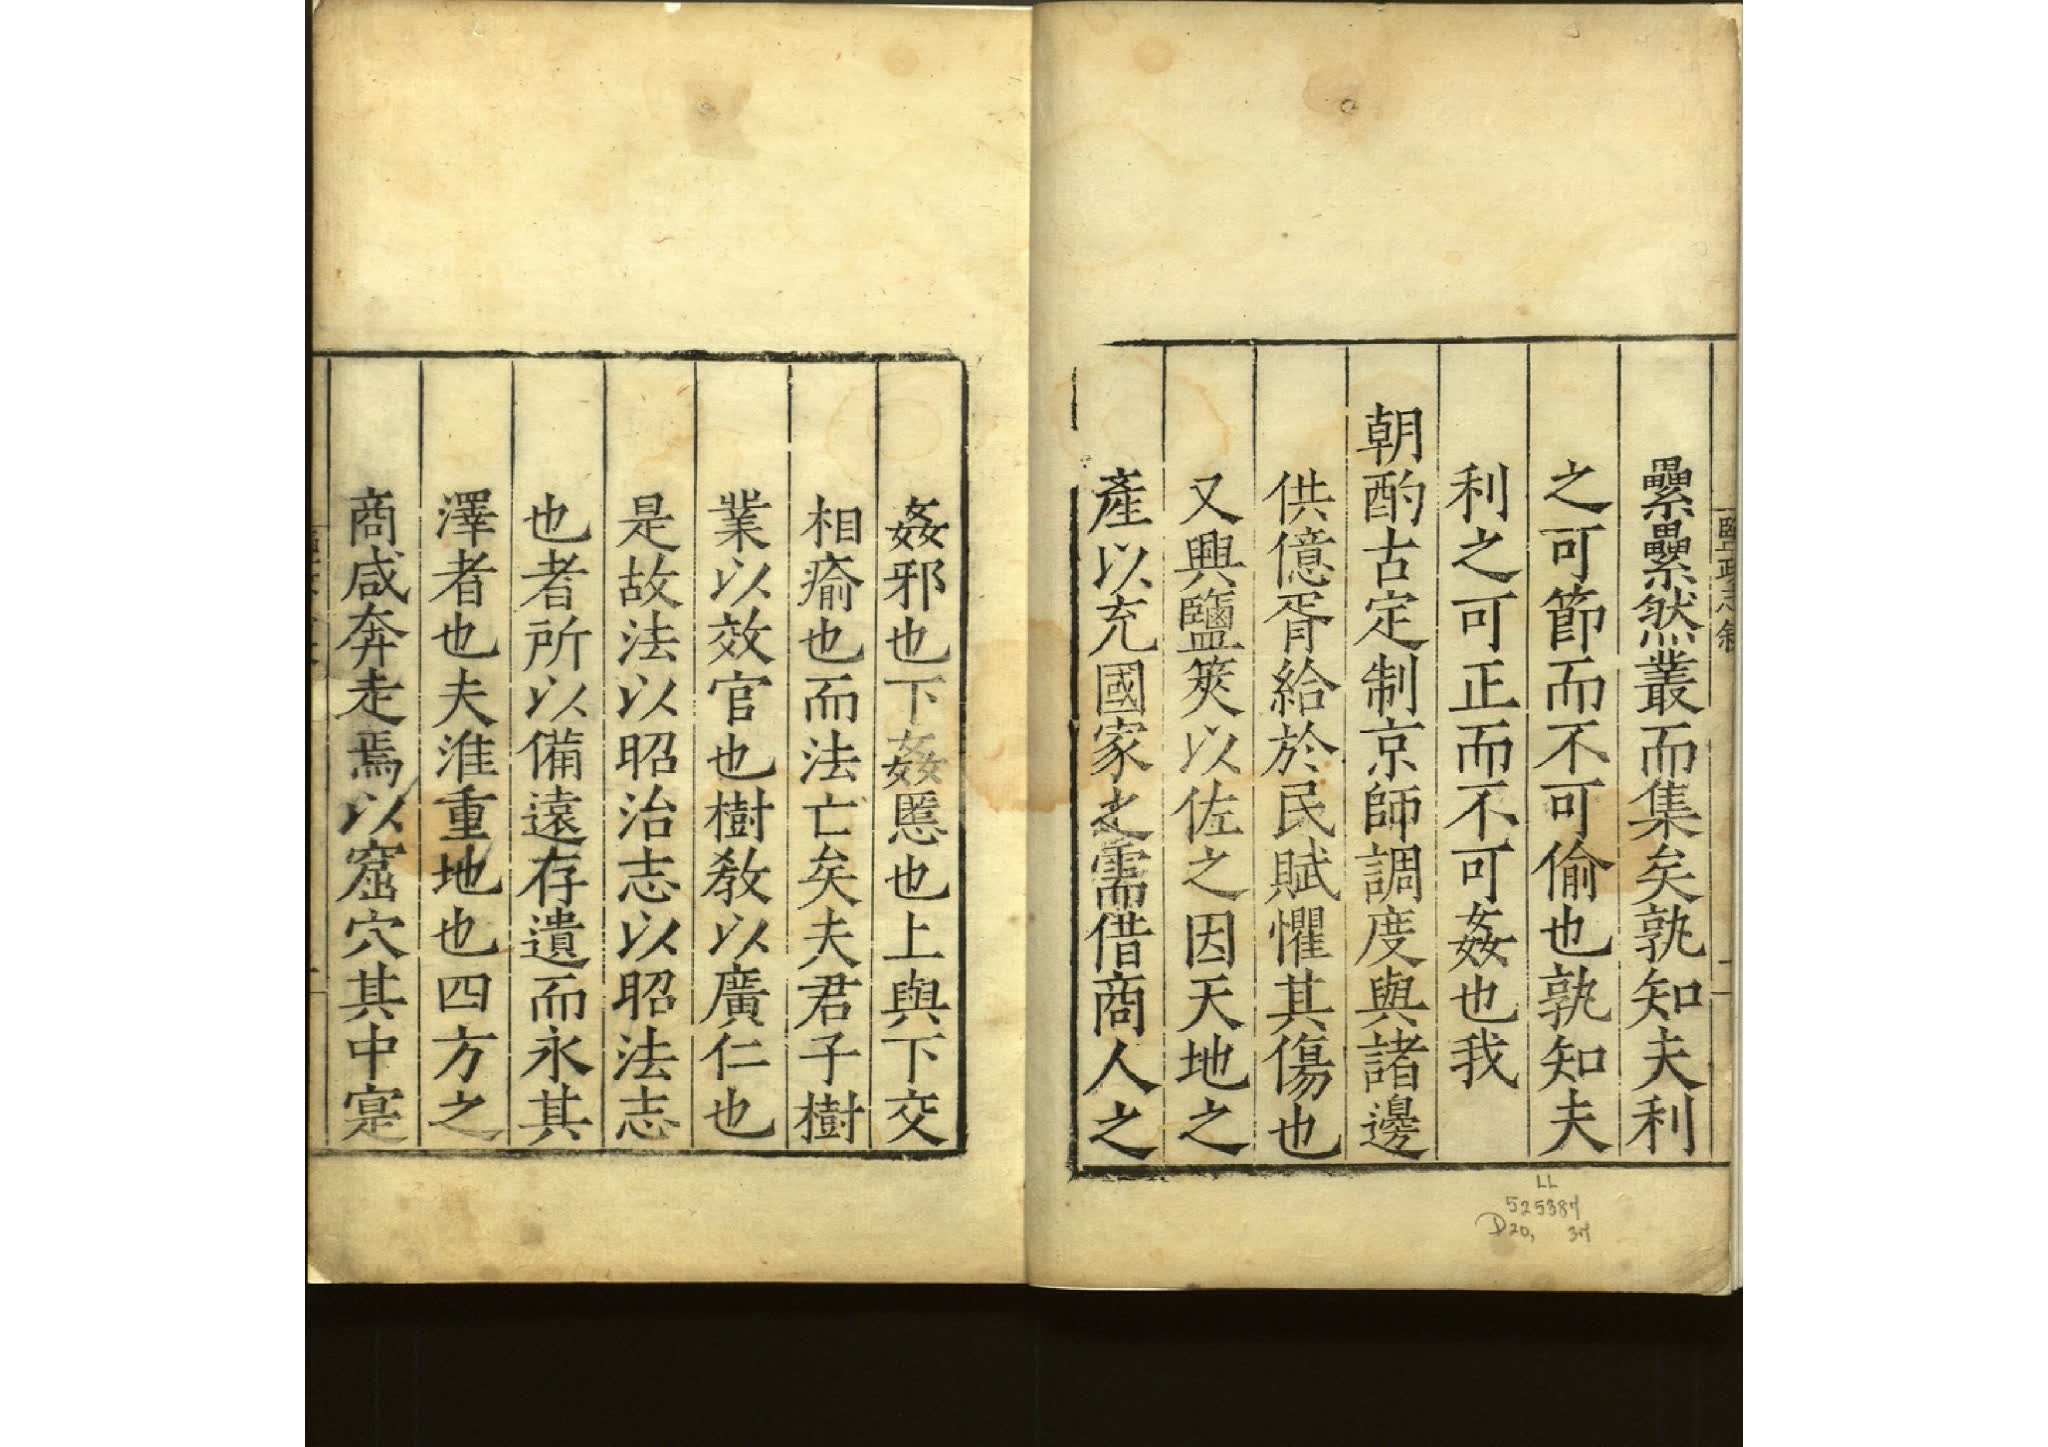 鹽政志敘
纍纍然叢而集矣孰知夫利
之可節而不可偷也孰知夫
利之可正而不可姦也我
朝酌古定制京師調度與諸邊
供億胥給於民賦懼其傷也
又興鹽筴以佐之因天地之
產以充國家之需借商人之
LL
525387
D20, 37
姦邪也下姦慝也上與下交
相瘉也而法亡矣夫君子樹
業以效官也樹教以廣仁也
是故法以昭治志以昭法志
也者所以備遠存遺而永其
澤者也夫淮重地也四方之
商咸奔走焉以窟穴其中寔